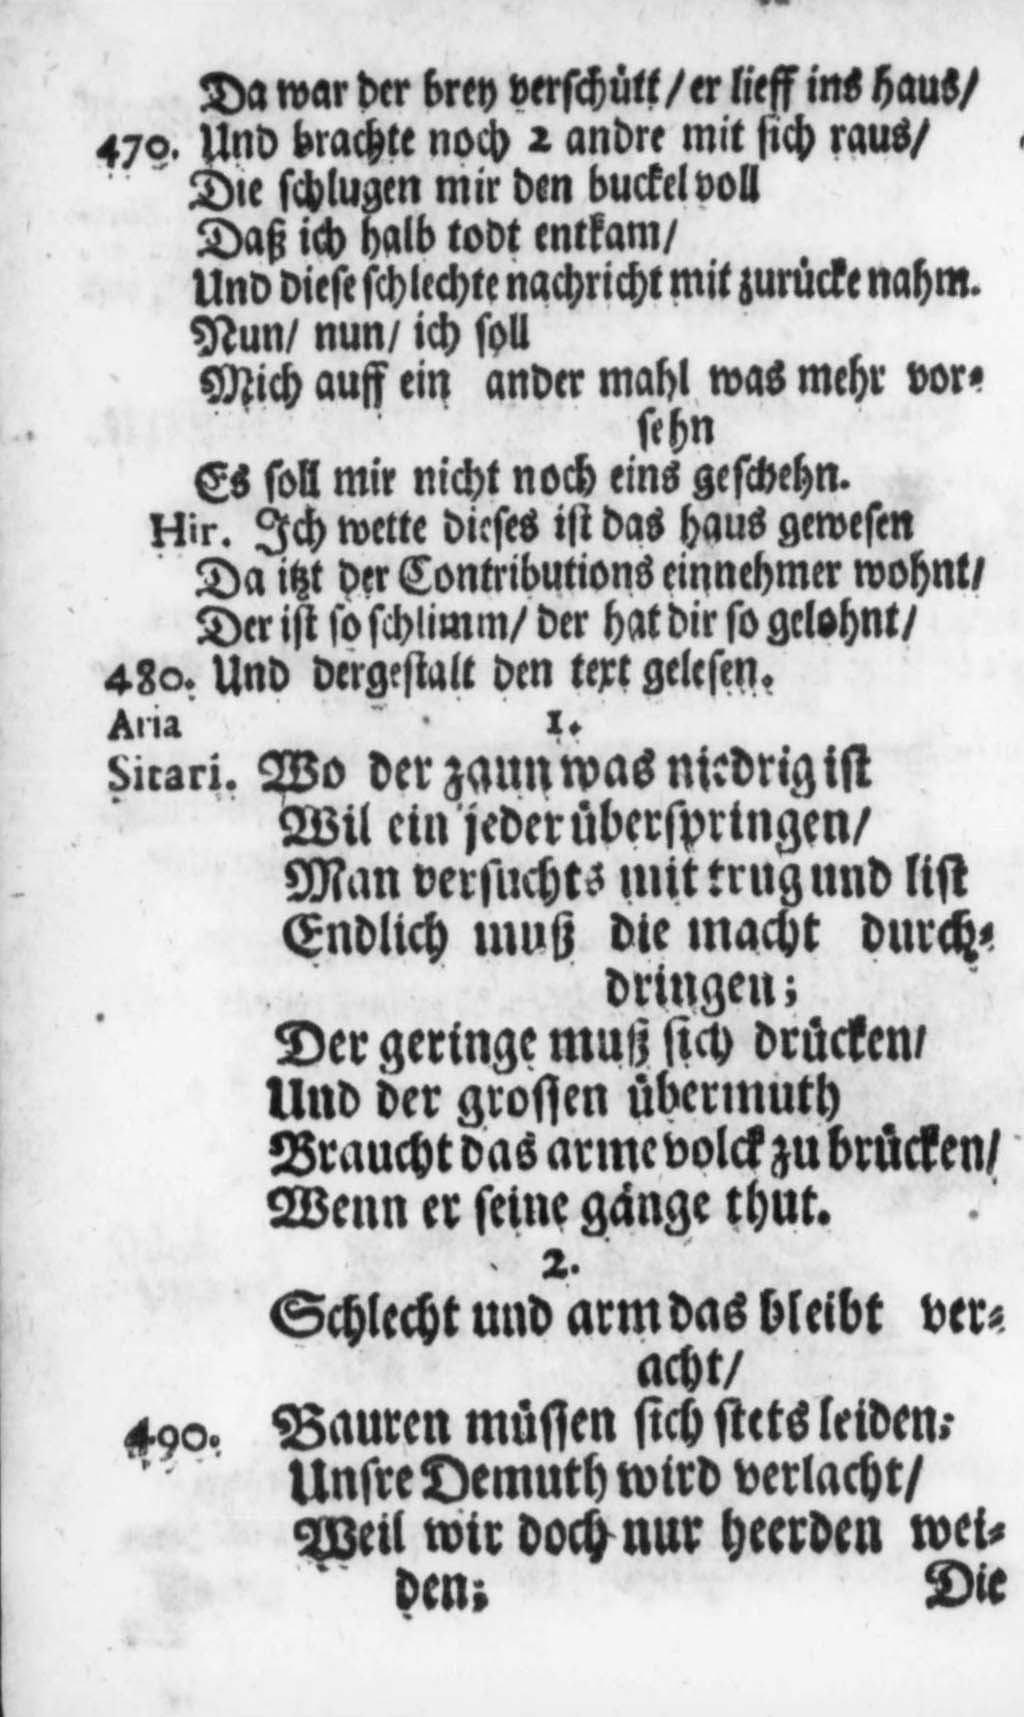 Da war der brey verschütt/ er lieff ins haus/
470. Und brachte noch 2 andre mit sich raus/
Die schlugen mir den buckel voll
Daß ich halb todt entkam/
Und diese schlechte nachricht mit zurücke nahm.
Nun/ nun/ ich soll
Mich auff ein ander mahl was mehr vor-
sehn
Es soll mir nicht noch eins geschehn.
Hir. Ich wette dieses ist das haus gewesen
Da itzt der Contributions einnehmer wohnt/
Der ist so schlimm/ der hat dir so gelohnt/
480. Und dergestalt den text gelesen.
Aria 1.
Sitari. Wo der zaun was niedrig ist
Wil ein jeder überspringen/
Man versuchts mit trug und list
Endlich muß die macht durch-
dringen;
Der geringe muß sich drücken/
Und der grossen übermuth
Braucht das arme volck zu brücken/
Wenn er seine gänge thut.
2.
Schlecht und arm das bleibt ver-
acht/
490. Bauren müssen sich stets leiden;
Unsre Demuth wird verlacht/
Weil wir doch nur heerden wei-
den; Die